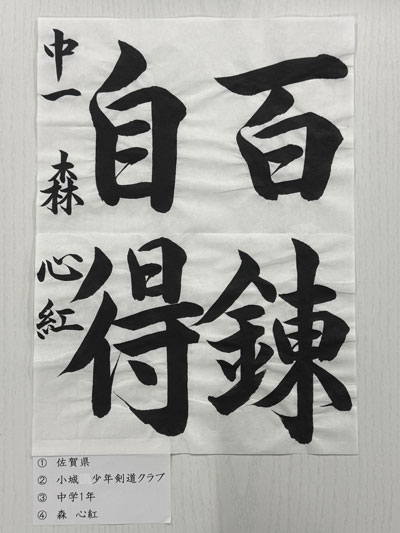 百錬
自得
中一 森 心紅
① 佐賀県
② 小城 少年剣道クラブ
③ 中学1年
④ 森 心紅